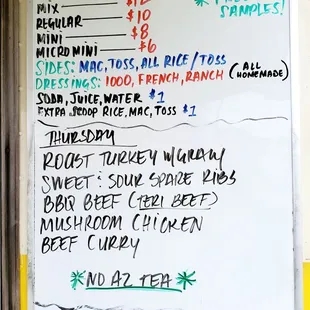 MIX
REGULAR $10
MINI $8
MICRO MINI $6
SAMPLES!
SIDES: MAC, TOSS, ALL RICE / TOSS
DRESSINGS: 1000, FRENCH, RANCH (ALL HOMEMADE)
SODA, JUICE, WATER $1
EXTRA SCOOP RICE, MAC, TOSS $1
THURSDAY
ROAST TURKEY W/GRAVY
SWEET & SOUR SPARE RIBS
BBQ BEEF (TERI BEEF)
MUSHROOM CHICKEN
BEEF CURRY
*NO AZ TEA*